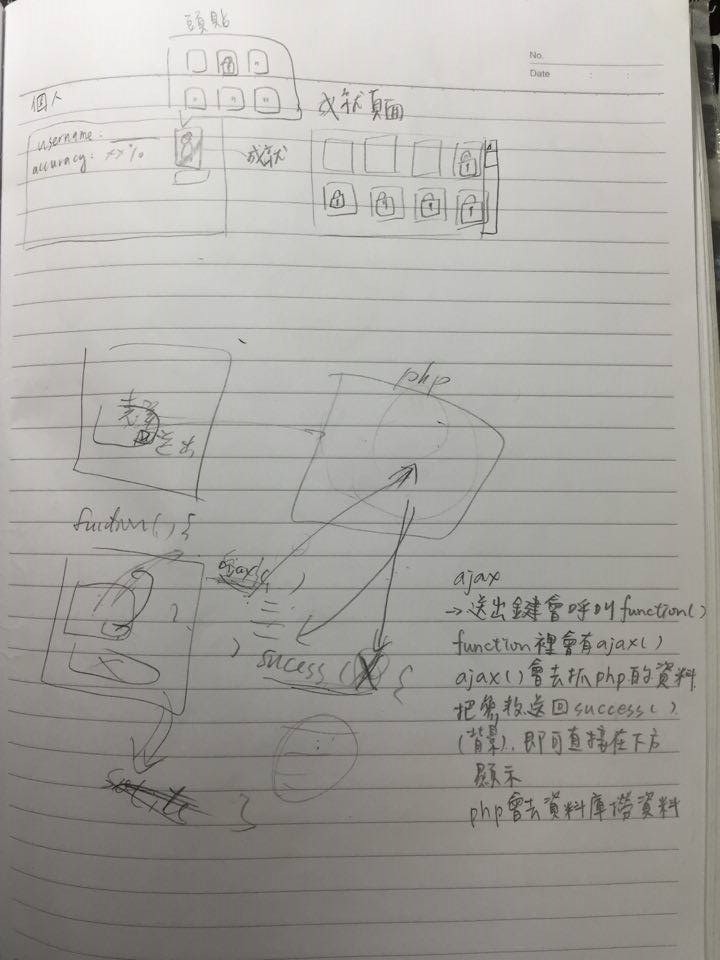 頭貼
No.
Date
個人
成就頁面
username:
accuracy: xx%
成就
php
送出
function() {
ajax( )
sucess ( X {
}
ajax
→ 送出鍵會呼叫function()
function裡會有ajax()
ajax()會去抓php的資料
把參數送回success()
(背景), 即可直接在下方
顯示
php會去資料庫撈資料